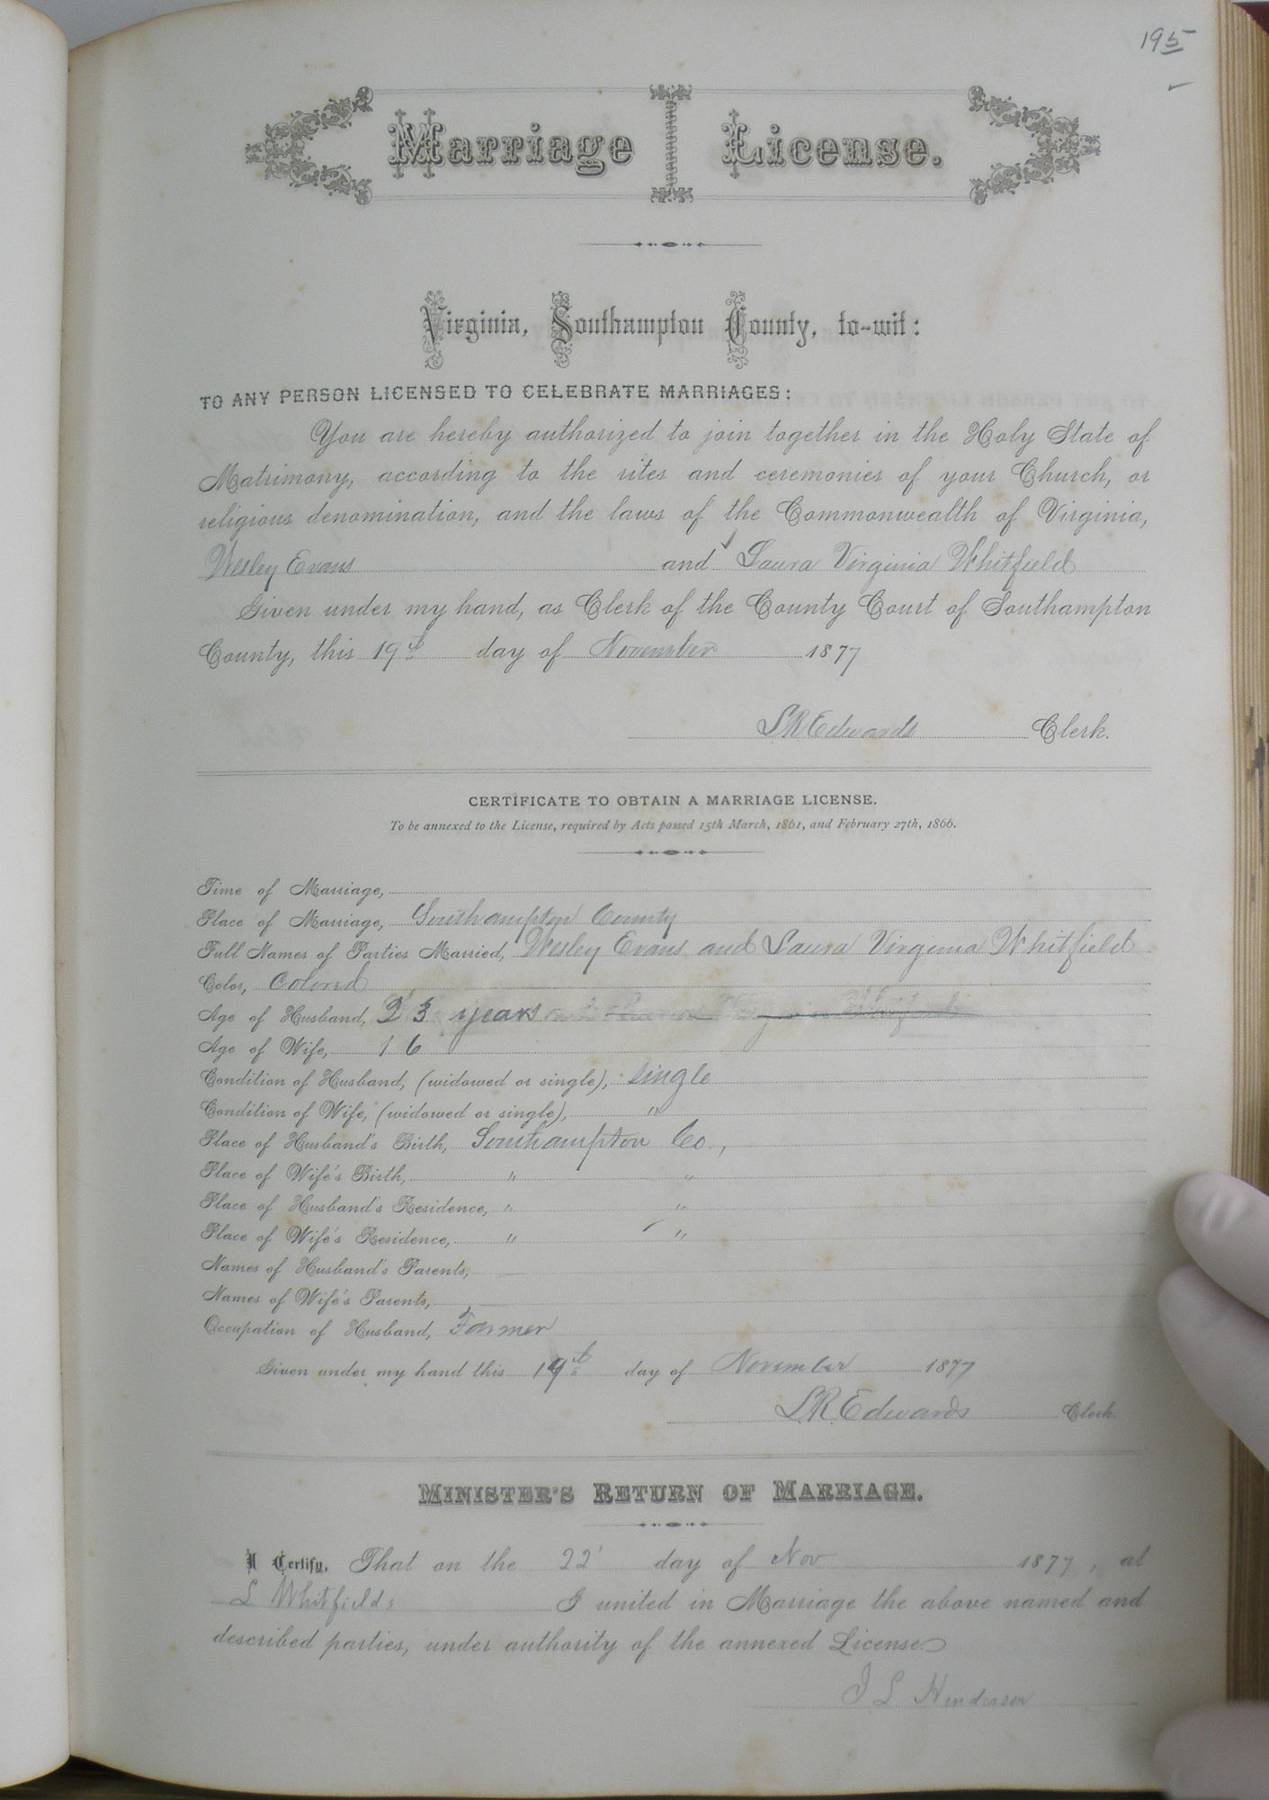 195
Marriage License.
Virginia, Southampton County, to-wit:
TO ANY PERSON LICENSED TO CELEBRATE MARRIAGES:
You are hereby authorized to join together in the Holy State of
Matrimony, according to the rites and ceremonies of your Church, or
religious denomination, and the laws of the Commonwealth of Virginia,
Wesley Evans and Laura Virginia Whitfield
Given under my hand, as Clerk of the County Court of Southampton
County, this 19th day of November 1877
L R Edwards Clerk.
CERTIFICATE TO OBTAIN A MARRIAGE LICENSE.
To be annexed to the License, required by Acts passed 15th March, 1861, and February 27th, 1866.
Time of Marriage,
Place of Marriage, Southampton County
Full Names of Parties Married, Wesley Evans and Laura Virginia Whitfield
Color, Colored
Age of Husband, 23 years
Age of Wife, 16
Condition of Husband, (widowed or single), single
Condition of Wife, (widowed or single), "
Place of Husband's Birth, Southampton Co.,
Place of Wife's Birth, " "
Place of Husband's Residence, " "
Place of Wife's Residence, " "
Names of Husband's Parents,
Names of Wife's Parents,
Occupation of Husband, Farmer
Given under my hand this 19th day of November 1877
L R Edwards Clerk.
MINISTER'S RETURN OF MARRIAGE.
I Certify, That on the 22 day of Nov 1877, at
L Whitfields I united in Marriage the above named and
described parties, under authority of the annexed License
J L Henderson